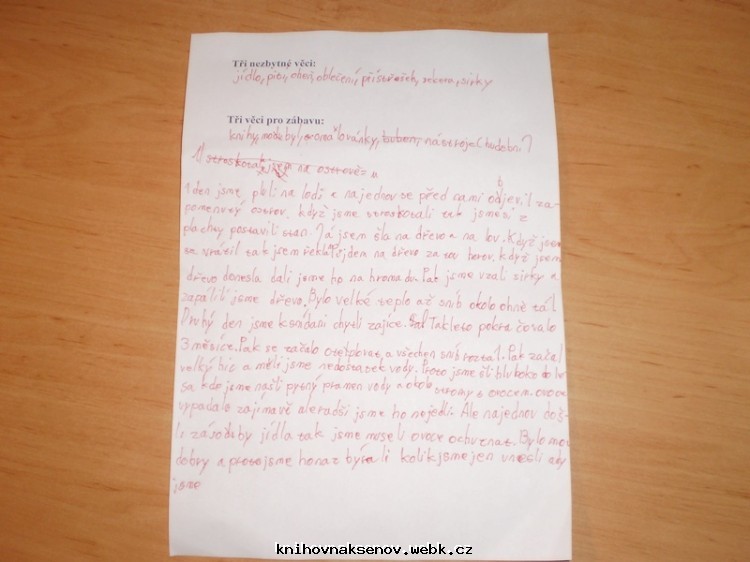 Tři nezbytné věci:
jídlo, pití, oheň, oblečení, přístřešek, sekera, sirky
Tři věci pro zábavu:
knihy, modely, omalovánky, buben, nástroje (hudební)
1) ztroskotali jsme na ostrově
1 den jsme pluli na lodi a najednou se před nami objevil za-
pomenutý ostrov. když jsme ztroskotali tak jsme si z
plachty postavili stan. Já jsem šla na dřevo a na lov. Když jsem
se vrátil tak jsem řekla jden na dřevo za tou horou. když jsem
dřevo donesla dali jsme ho na hromadu. Pak jsme vzali sirky a
zapálili jsme dřevo. Bylo velké teplo až sníh okolo ohně tál
Druhý den jsme k snídani chytli zajíce. Takleto pokračovalo
3 měsíce. Pak se začalo oteplovat a všechen sníh roztál. Pak začal
velký hic a měli jsme nedostatek vody. Proto jsme šli hluboko do le-
sa kde jsme našli pytný pramen vody a okolo stromy s ovocem. ovoce
vypadalo zajímavě ale radši jsme ho nejedli. Ale najednou doš-
li zásoby jídla tak jsme museli ovoce ochutnat. Bylo moc
dobry a proto jsme ho natrhali kolik jsme jen unesli aby
jsme
knihovnaksenov.webk.cz